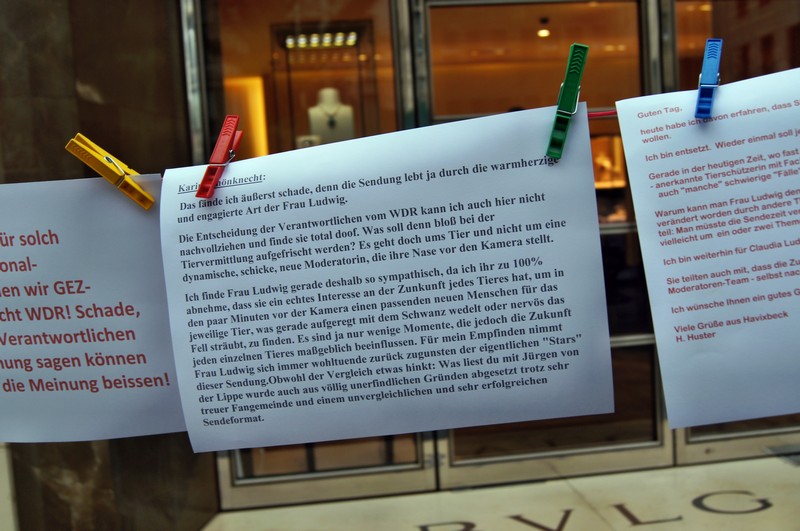 für solch
onal-
en wir GEZ-
cht WDR! Schade,
Verantwortlichen
nung sagen können
die Meinung beissen!
Schönknecht:
Das fände ich äußerst schade, denn die Sendung lebt ja durch die warmherzige
und engagierte Art der Frau Ludwig.
Die Entscheidung der Verantwortlichen vom WDR kann ich auch hier nicht
nachvollziehen und finde sie total doof. Was soll denn bloß bei der
Tiervermittlung aufgefrischt werden? Es geht doch ums Tier und nicht um eine
dynamische, schicke, neue Moderatorin, die ihre Nase vor den Kamera stellt.
Ich finde Frau Ludwig gerade deshalb so sympathisch, da ich ihr zu 100%
abnehme, dass sie ein echtes Interesse an der Zunkunft jedes Tieres hat, um in
den paar Minuten vor der Kamera einen passenden neuen Menschen für das
jeweilige Tier, was gerade aufgeregt mit dem Schwanz wedelt oder nervös das
Fell sträubt, zu finden. Es sind ja nur wenige Momente, die jedoch die Zukunft
jeden einzelnen Tieres maßgeblich beeinflussen. Für mein Empfinden nimmt
Frau Ludwig sich immer wohltuende zurück zugunsten der eigentlichen "Stars"
dieser Sendung.Obwohl der Vergleich etwas hinkt: Was liest du mit Jürgen von
der Lippe wurde auch aus völlig unerfindlichen Gründen abgesetzt trotz sehr
treuer Fangemeinde und einem unvergleichlichen und sehr erfolgreichen
Sendeformat.
Guten Tag,
heute habe ich davon erfahren, dass S
wollen.
Ich bin entsetzt. Wieder einmal soll je
Gerade in der heutigen Zeit, wo fast
- anerkannte Tierschützerin mit Fach
auch "manche" schwierige "Fälle"
Warum kann man Frau Ludwig den
verändert worden durch andere Ti
teil: Man müsste die Sendezeit ver
vielleicht um ein oder zwei Them
Ich bin weiterhin für Claudia Lud
Sie teilten auch mit, dass die Zu
Moderatoren-Team - selbst nac
Ich wünsche Ihnen ein gutes G
Viele Grüße aus Havixbeck
H. Huster
BVLG